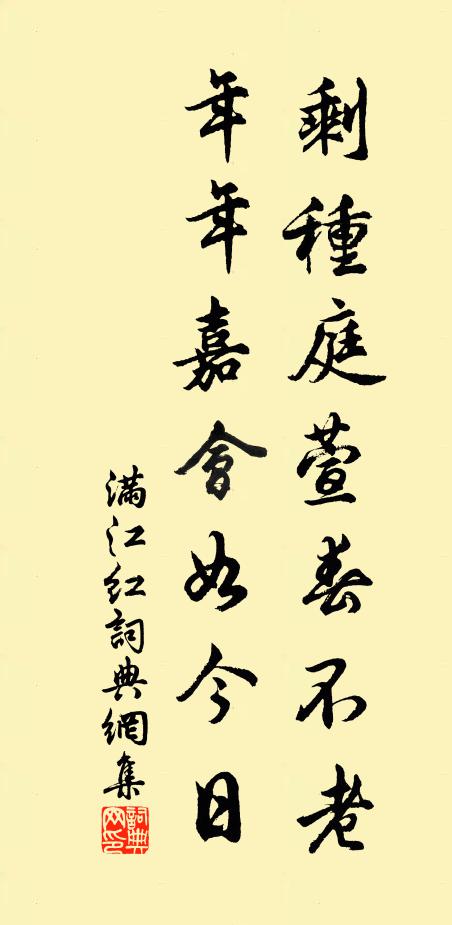 剩種庭萱春不老
年年嘉會如今日
滿江紅詞典網集
詞典网印